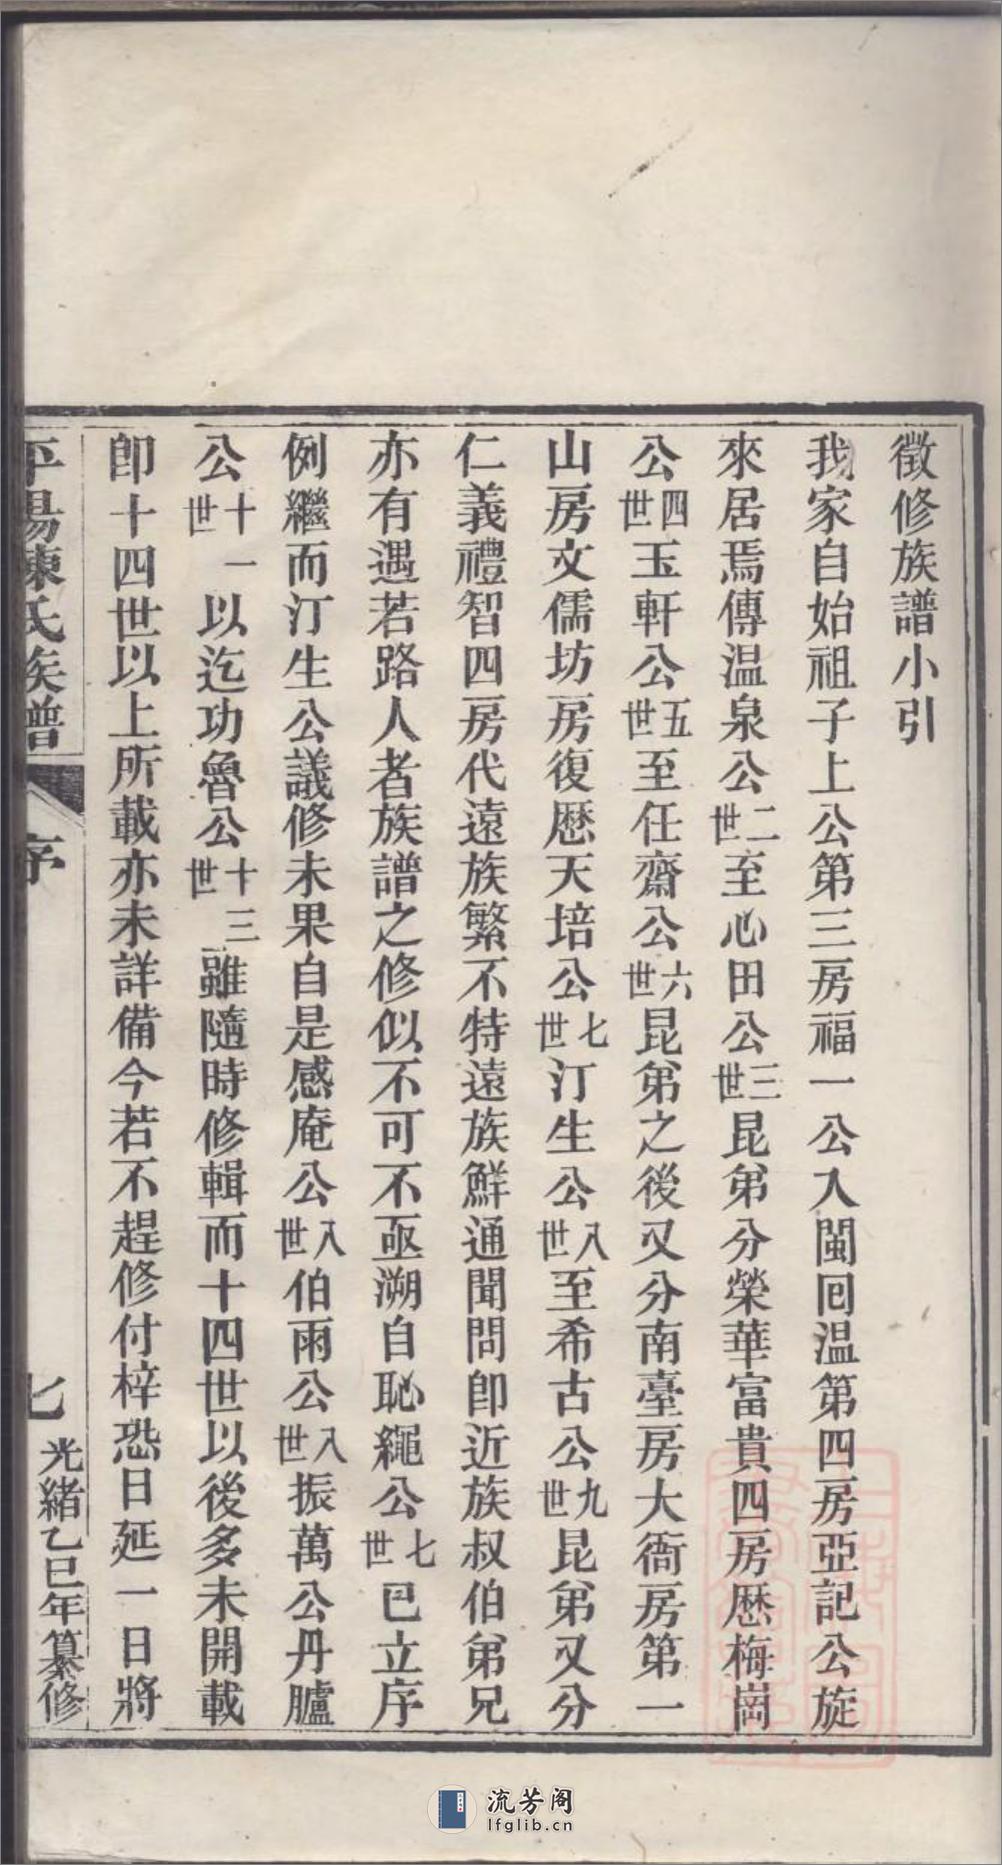 徵修族譜小引
我家自始祖子上公第三房福一公入閩回溫第四房亞記公旋
來居焉傳溫泉公二世至心田公三世昆弟分榮華富貴四房歷梅崗
公四世玉軒公五世至任齋公六世昆弟之後又分南臺房大衙房第一
山房文儒坊房復歷天培公七世汀生公八世至希古公九世昆弟又分
仁義禮智四房代遠族繁不特遠族鮮通聞問卽近族叔伯弟兄
亦有遇若路人者族譜之修似不可不亟溯自恥繩公七世已立序
例繼而汀生公議修未果自是感庵公八世伯雨公八世振萬公丹臚
公十一世以迄功魯公十三世雖隨時修輯而十四世以後多未開載
卽十四世以上所載亦未詳備今若不趕修付梓恐日延一日將
平陽陳氏族譜 序 七 光緒乙巳年纂修
流芳阁
lfglib.cn